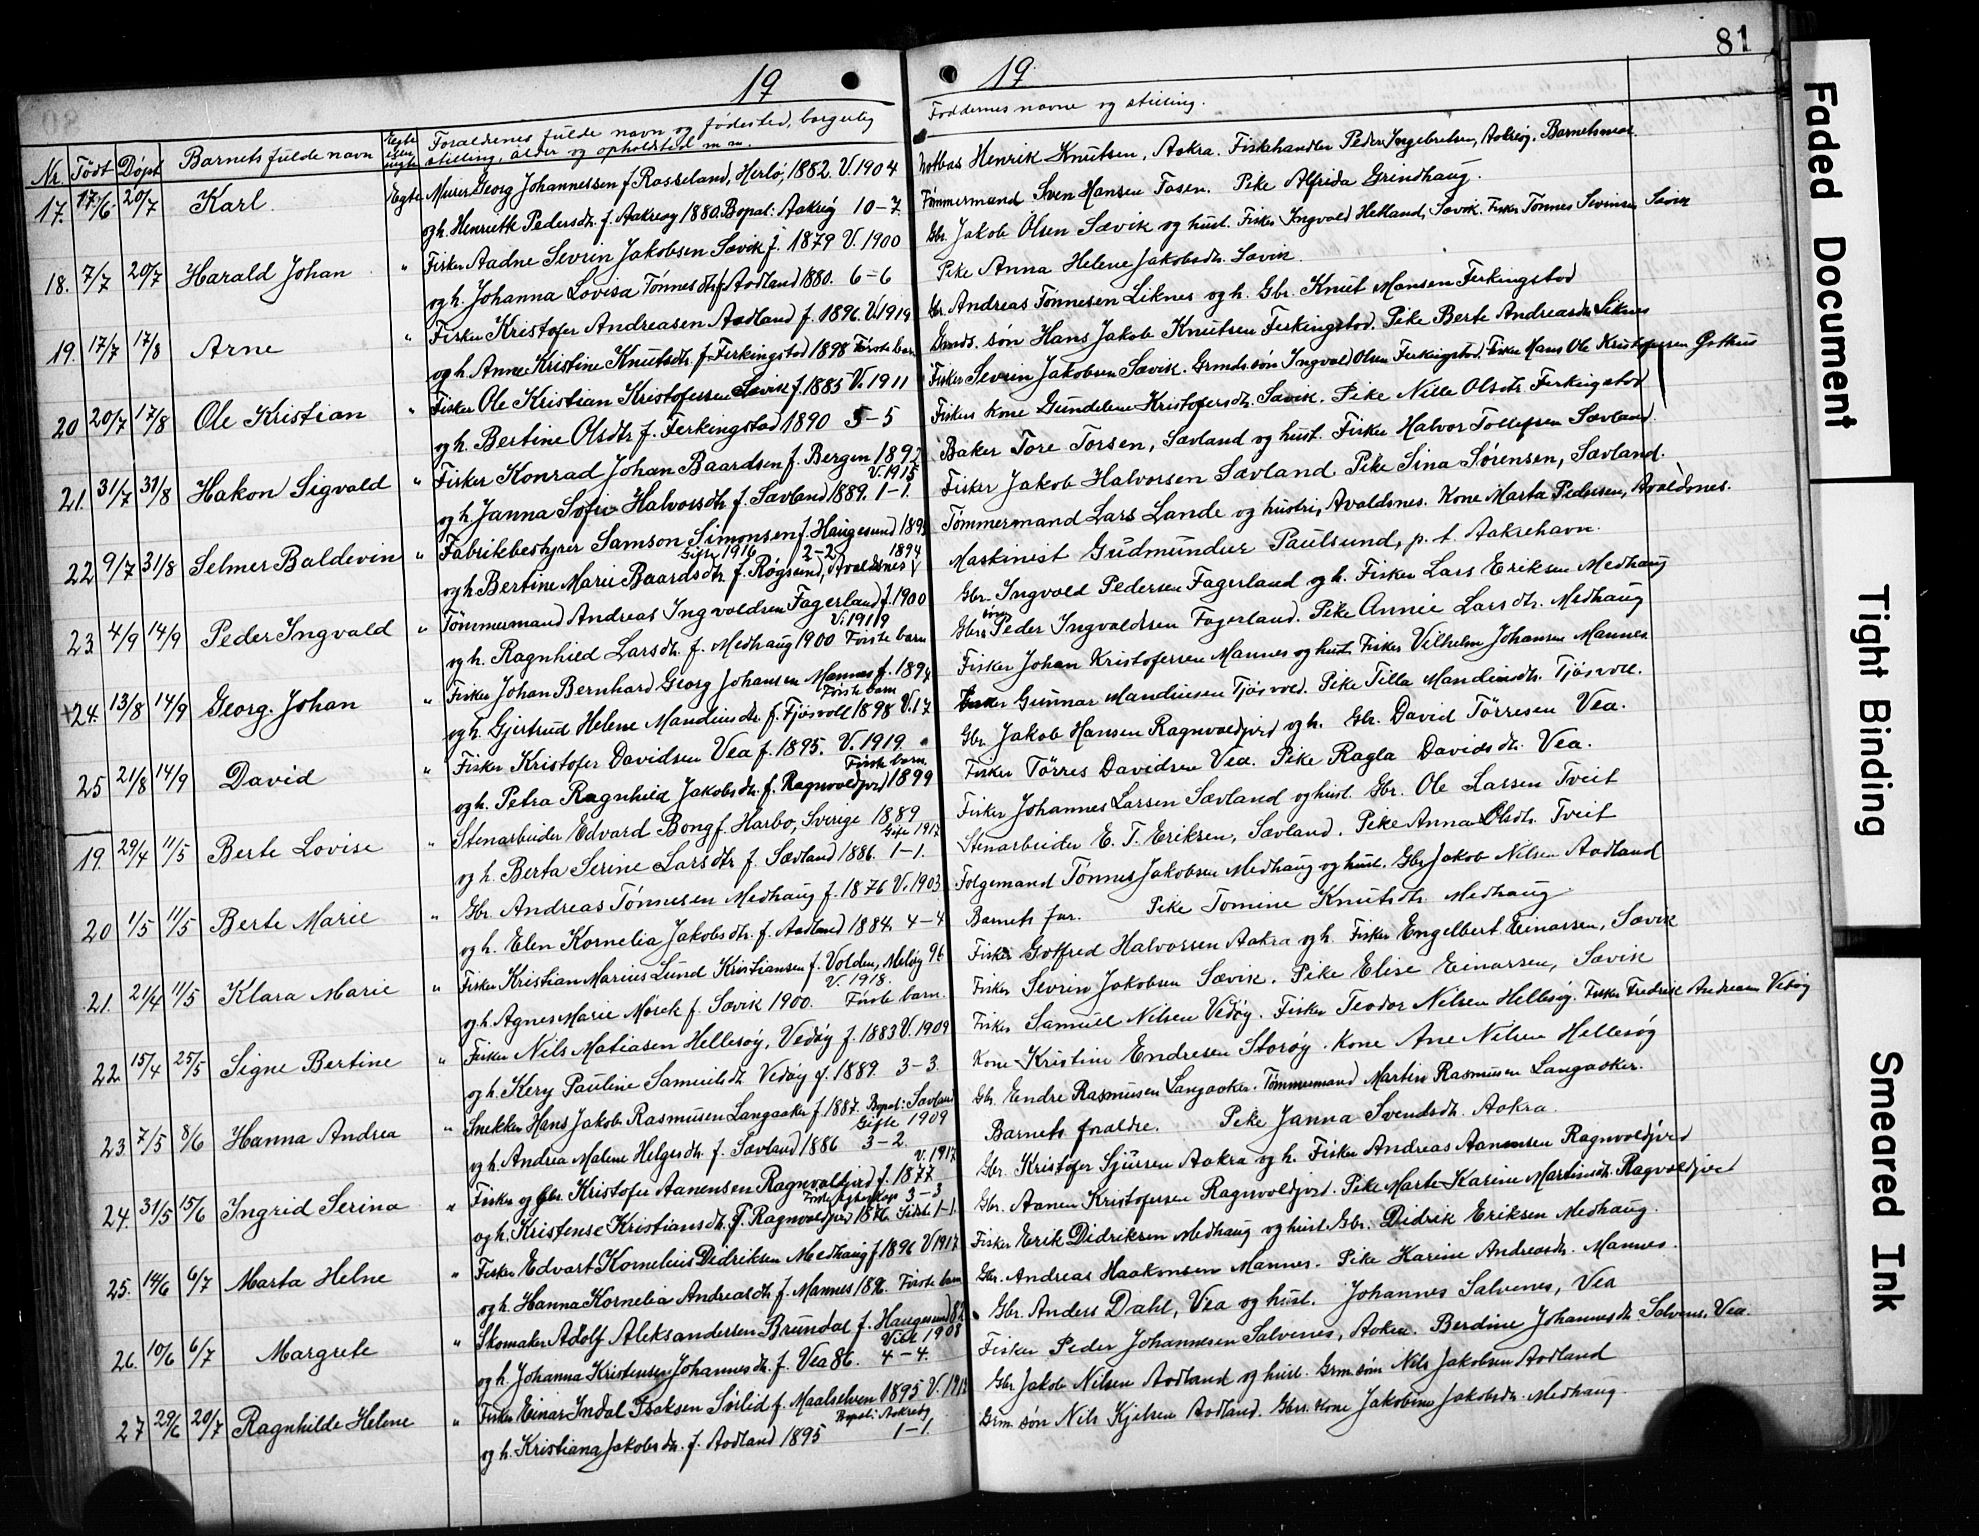 81
19
19
Nr. Født Døpt Barnets fulde navn Egte eller uegte Foraldrenes fulde navn og fødested, borgerlig
stilling, alder og opholdsted m. m.
Faddernes navne og stilling.
17. 17/6 20/7 Karl Egte Murer Georg Johannessen f. Rosseland, Herlø, 1882. V. 1904
og h. Henriette Pedersdtr. f. Aakreøg 1880. Bopæl: Aakreøg 10-7
Notbas Henrik Knutsen, Aakra. Fiskehandler Peder Ingebretsen, Aakreøg. Barnets mor.
Tømmermand Sven Hansen Tosen. Pike Alfrida Grendhaug.
18. 7/7 20/7 Harald Johan " Fisker Aadne Sevrin Jakobsen Sævik f. 1879 V. 1900
og h. Johanna Lovisa Tønnesdtr. f. Aodland 1880. 6-6
Gbr. Jakob Olsen Sævik og hust. Fisker Ingvald Hetland, Sævik. Fisker Tønnes Sevrinsen Sævik
Pike Anna Helene Jakobsdtr. Sævik.
19. 17/7 17/8 Arne " Fisker Kristofer Andreasen Aadland f. 1896. V. 1919
og h. Anne Kristine Knutsdtr. f. Ferkingstad 1898 Første barn
Gbr. Andreas Tønnesen Liknes og h. Gbr. Knut Monsen Ferkingstod
Grmds. søn Hans Jakob Knutsen Ferkingstod. Pike Berte Andreasdtr. Liknes
20 20/7 17/8 Ole Kristian " Fisker Ole Kristian Kristofersen Sævik f. 1885 V. 1911
og h. Bertine Olsdtr. f. Ferkingstad 1890 5-5
Fisker Sevrin Jakobsen Sævik. Grmds. søn Ingvald Olsen Ferkingstod. Fisker Hans Ole Kristofersen
Fiskers kone Gundeline Kristofersdtr. Sævik. Pike Nille Olsdtr. Ferkingstod
21. 31/7 31/8 Hakon Sigvald " Fisker Konrad Johan Baardsen f. Bergen 1892
V. 1915
og h. Janna Sofie Halvorsdtr. f. Sævland 1889. 1-1.
Baker Tore Torsen, Sævland og hust. Fisker Halvor Tollefsen Sævland.
Fisker Jakob Halvorsen Sævland. Pike Sina Sørensen, Sævland.
22 9/7 31/8 Selmer Baldevin " Fabrikbestyrer Samson Simonsen f. Haugesund
Gifte 1916 2-2 1894
og h. Bertine Marie Baardsdtr. f. Røgsund, Avaldsnes
Tømmermand Lars Lande og hustri, Avaldsnes. Kone Marta Pedersen, Avaldsnes.
Maskinist Gudmunder Paulsund, p. t. Aakrehavn.
23 4/9 14/9 Peder Ingvald " Tømmermand Andreas Ingvaldsen Fagerland f. 1900
V. 1919
og h. Ragnhild Larsdtr. f. Medhaug 1900 Første barn
Gbr. Ingvald Pedersen Fagerland og h. Fisker Lars Eriksen Medhaug
Gbrs. søn Peder Ingvaldsen Fagerland. Pike Annie Larsdtr. Medhaug
+24. 13/8 14/9 Georg. Johan " Fisker Johan Bernhard Georg Johansen Mannes f. 1894
Første barn
og h. Gjertrud Helene Mandiusdtr. f. Tjøsvoll 1898 V. 17
Fisker Johan Kristofersen Mannes og hust. Fisker Vilhelm Johansen Mannes
Fisker Gunnar Mandiusen Tjøsvold. Pike Tilla Mandiusdtr. Tjøsvoll.
25 21/8 14/9 David " Fisker Kristofer Davidsen Vea f. 1895. V. 1919.
Første barn
og h. Petra Ragnhild Jakobsdtr. f. Ragnvoldjord 1899
Gbr. Jakob Hansen Ragnvaldjord og h. Gbr. David Tørresen Vea.
Fisker Tørres Davidsen Vea. Pike Ragla Davidsdtr. Vea.
19. 29/4 11/5 Berte Lovise " Stenarbeider Edvard Bong f. Harbo, Sverige 1889
Gifte 1917
og h. Berta Serine Larsdtr. f. Sævland 1886. 1-1.
Fisker Johannes Larsen Sævland og hust. Gbr. Ole Larsen Tveit
Stenarbeider E. T. Eriksen, Sævland. Pike Anna Olsdtr. Tveit
20 1/5 11/5 Berte Marie " Gbr. Andreas Tønnesen Medhaug f. 1876 V. 1903
og h. Elen Kornelia Jakobsdtr. f. Aadland 1884. 4-4
Folgemand Tønnes Jakobsen Medhaug og hust. Gbr. Jakob Nilsen Aodland
Barnets far. Pike Tomine Knutsdtr. Medhaug.
21. 21/4 11/5 Klara Marie " Fisker Kristian Marius Lund Kristiansen f. Volden, Meløy 96
V. 1918.
og h. Agnes Marie Mørck f. Sævik 1900. Første barn.
Fisker Gotfred Halvorsen Aakra og h. Fisker Engelbert Einarsen, Sævik
Fisker Sevrin Jakobsen Sævik. Pike Elise Einarsen, Sævik
22. 15/4 25/5 Signe Bertine " Fisker Nils Matiasen Hellesøy, Vedøy f. 1883 V. 1909
og h. Kery Pauline Samuelsdtr. Vedøy f. 1889. 3-3.
Fisker Samuel Nilsen Vedøy. Fisker Teodor Nilsen Hellesøy. Fisker Fredrik Andreasen Vedøy
Kone Kristine Endresen Storøy. Kone Ane Nilsen Hellesøy
23. 7/5 8/6 Hanna Andrea " Snekker Hans Jakob Rasmusen Langaaker f. 1887. Bopæl: Sævland
Gifte 1909
og h. Andrea Malene Helgesdtr. f. Sævland 1886 3-2.
Gbr. Endre Rasmusen Langaaker. Tømmermand Martin Rasmusen Langaaker.
Barnets foraldre. Pike Janna Svendsdtr. Aakra.
24. 31/5 15/6 Ingrid Serina " Fisker og Gbr. Kristofer Aanensen Ragnvaldjord f. 1877
V. 1917
Første egteskap 3-3
og h. Kristense Kristiansdtr. f. Ragnvoldjord 1876. Sidste 1-1.
Gbr. Kristofer Sjursen Aakra og h. Fisker Andreas Aanensen Ragnvoldjord
Gbr. Aanen Kristofersen Ragnvoldjord. Pike Marte Karine Martinsdtr. Ragvoldjord
25. 14/6 6/7 Marta Helne " Fisker Edvart Kornelius Didriksen Medhaug f. 1896 V. 1917
og h. Hanna Kornelia Andreasdtr. f. Mannes 1896. Første barn
Fisker Erik Didriksen Medhaug og hust. Gbr. Didrik Eriksen Medhaug.
Gbr. Andreas Haakonsen Mannes. Pike Karine Andreasdtr. Mannes.
26. 10/6 6/7 Margrete " Skomaker Adolf Aleksandersen Brundal f. Haugesund 82
Viet 1908
og h. Johanna Kristensen Johannesdtr. f. Vea 86. 4-4.
Gbr. Anders Dahl, Vea og hust. Johannes Salvenes, Vea
Fisker Peder Johannesen Salvenes, Aakra. Berdine Johannesdtr. Salvenes, Vea.
27 29/6 20/7 Ragnhilde Helene " Fisker Einar Indal Isaksen Solid f. Maalselven 1895 V. 1918
Bopæl: Aakreøg
og h. Kristiana Jakobsdtr. f. Aodland 1895 1-1.
Gbr. Jakob Nilsen Aodland og hust. Grm. søn Nils Jakobsen Aodland
Grm. søn Nils Kjelsen Aodland. Gbrs. kone Jakobine Jakobsdtr. Medhaug.
Faded Document
Tight Binding
Smeared Ink